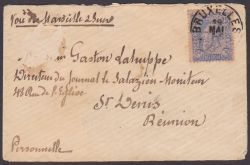 Voie de Marseille
BRUXELLES
MAI
Monsieur Gaston Lahuppe
Directeur du Journal le Salazien-Moniteur
Rue de l'Eglise
St Denis
Réunion
Personnelle